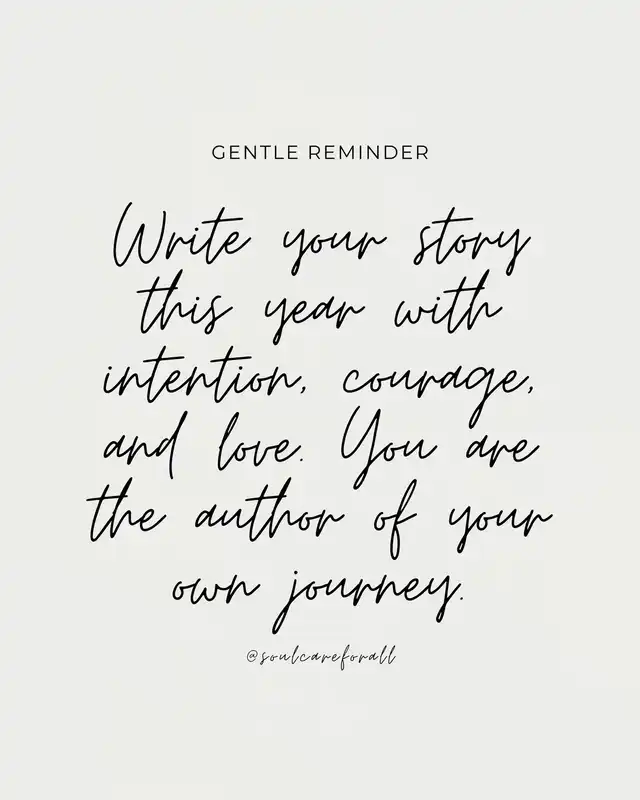 GENTLE REMINDER
Write your story
this year with
intention, courage,
and love. You are
the author of your
own journey.
@soulcareforall